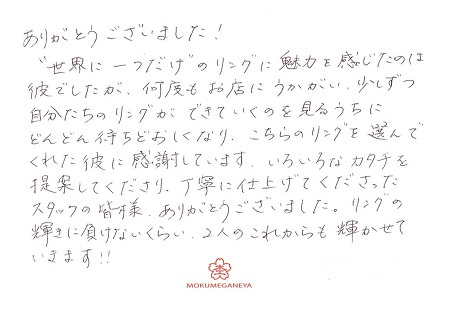 ありがとうございました！
"世界に一つだけ"のリングに魅力を感じたのは
彼でしたが、何度もお店にうかがい、少しずつ
自分たちのリングができていくのを見るうちに
どんどん待ちどおしくなり、こちらのリングを選んで
くれた彼に感謝しています。いろいろなカタチを
提案してくださり、丁寧に仕上げてくださった
スタッフの皆様、ありがとうございました。リングの
輝きに負けないくらい、2人のこれからも輝かせて
いきます!!
MOKUMEGANEYA